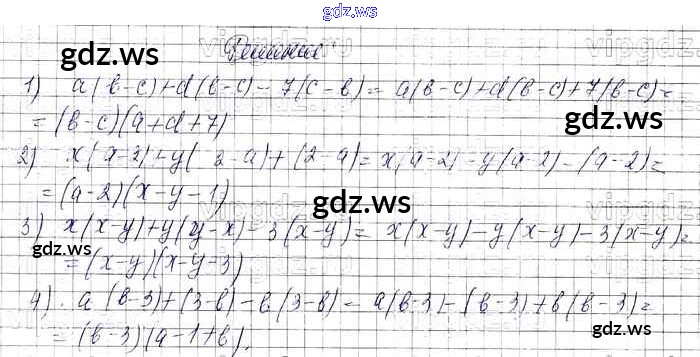 gdz.ws
gdz.ws
Решение
1) a(b-c)+d(b-c)-7(c-b)= a(b-c)+d(b-c)+7(b-c)=
=(b-c)(a+d+7)
gdz.ws
2) x(a-2)+y(2-a)+(2-a)= x(a-2)-y(a-2)-(a-2)=
=(a-2)(x-y-1)
gdz.ws
3) x(x-y)+y(y-x)-3(x-y)= x(x-y)-y(x-y)-3(x-y)=
gdz.ws
=(x-y)(x-y-3)
4). a(b-3)+(3-b)-b(3-b)= a(b-3)-(b-3)+b(b-3)=
gdz.ws
=(b-3)(a-1+b).